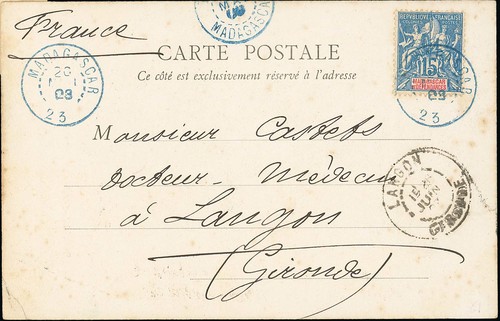 France
MADAGASCAR
CARTE POSTALE
Ce côté est exclusivement réservé à l'adresse
RÉPUBLIQUE FRANÇAISE
15
MADAGASCAR
ET DÉPENDANCES
MADAGASCAR
20
03
23
03
23
Monsieur Castets
Docteur-Médecin
à Langon
(Gironde)
LANGON
15
JUIN
GIRONDE